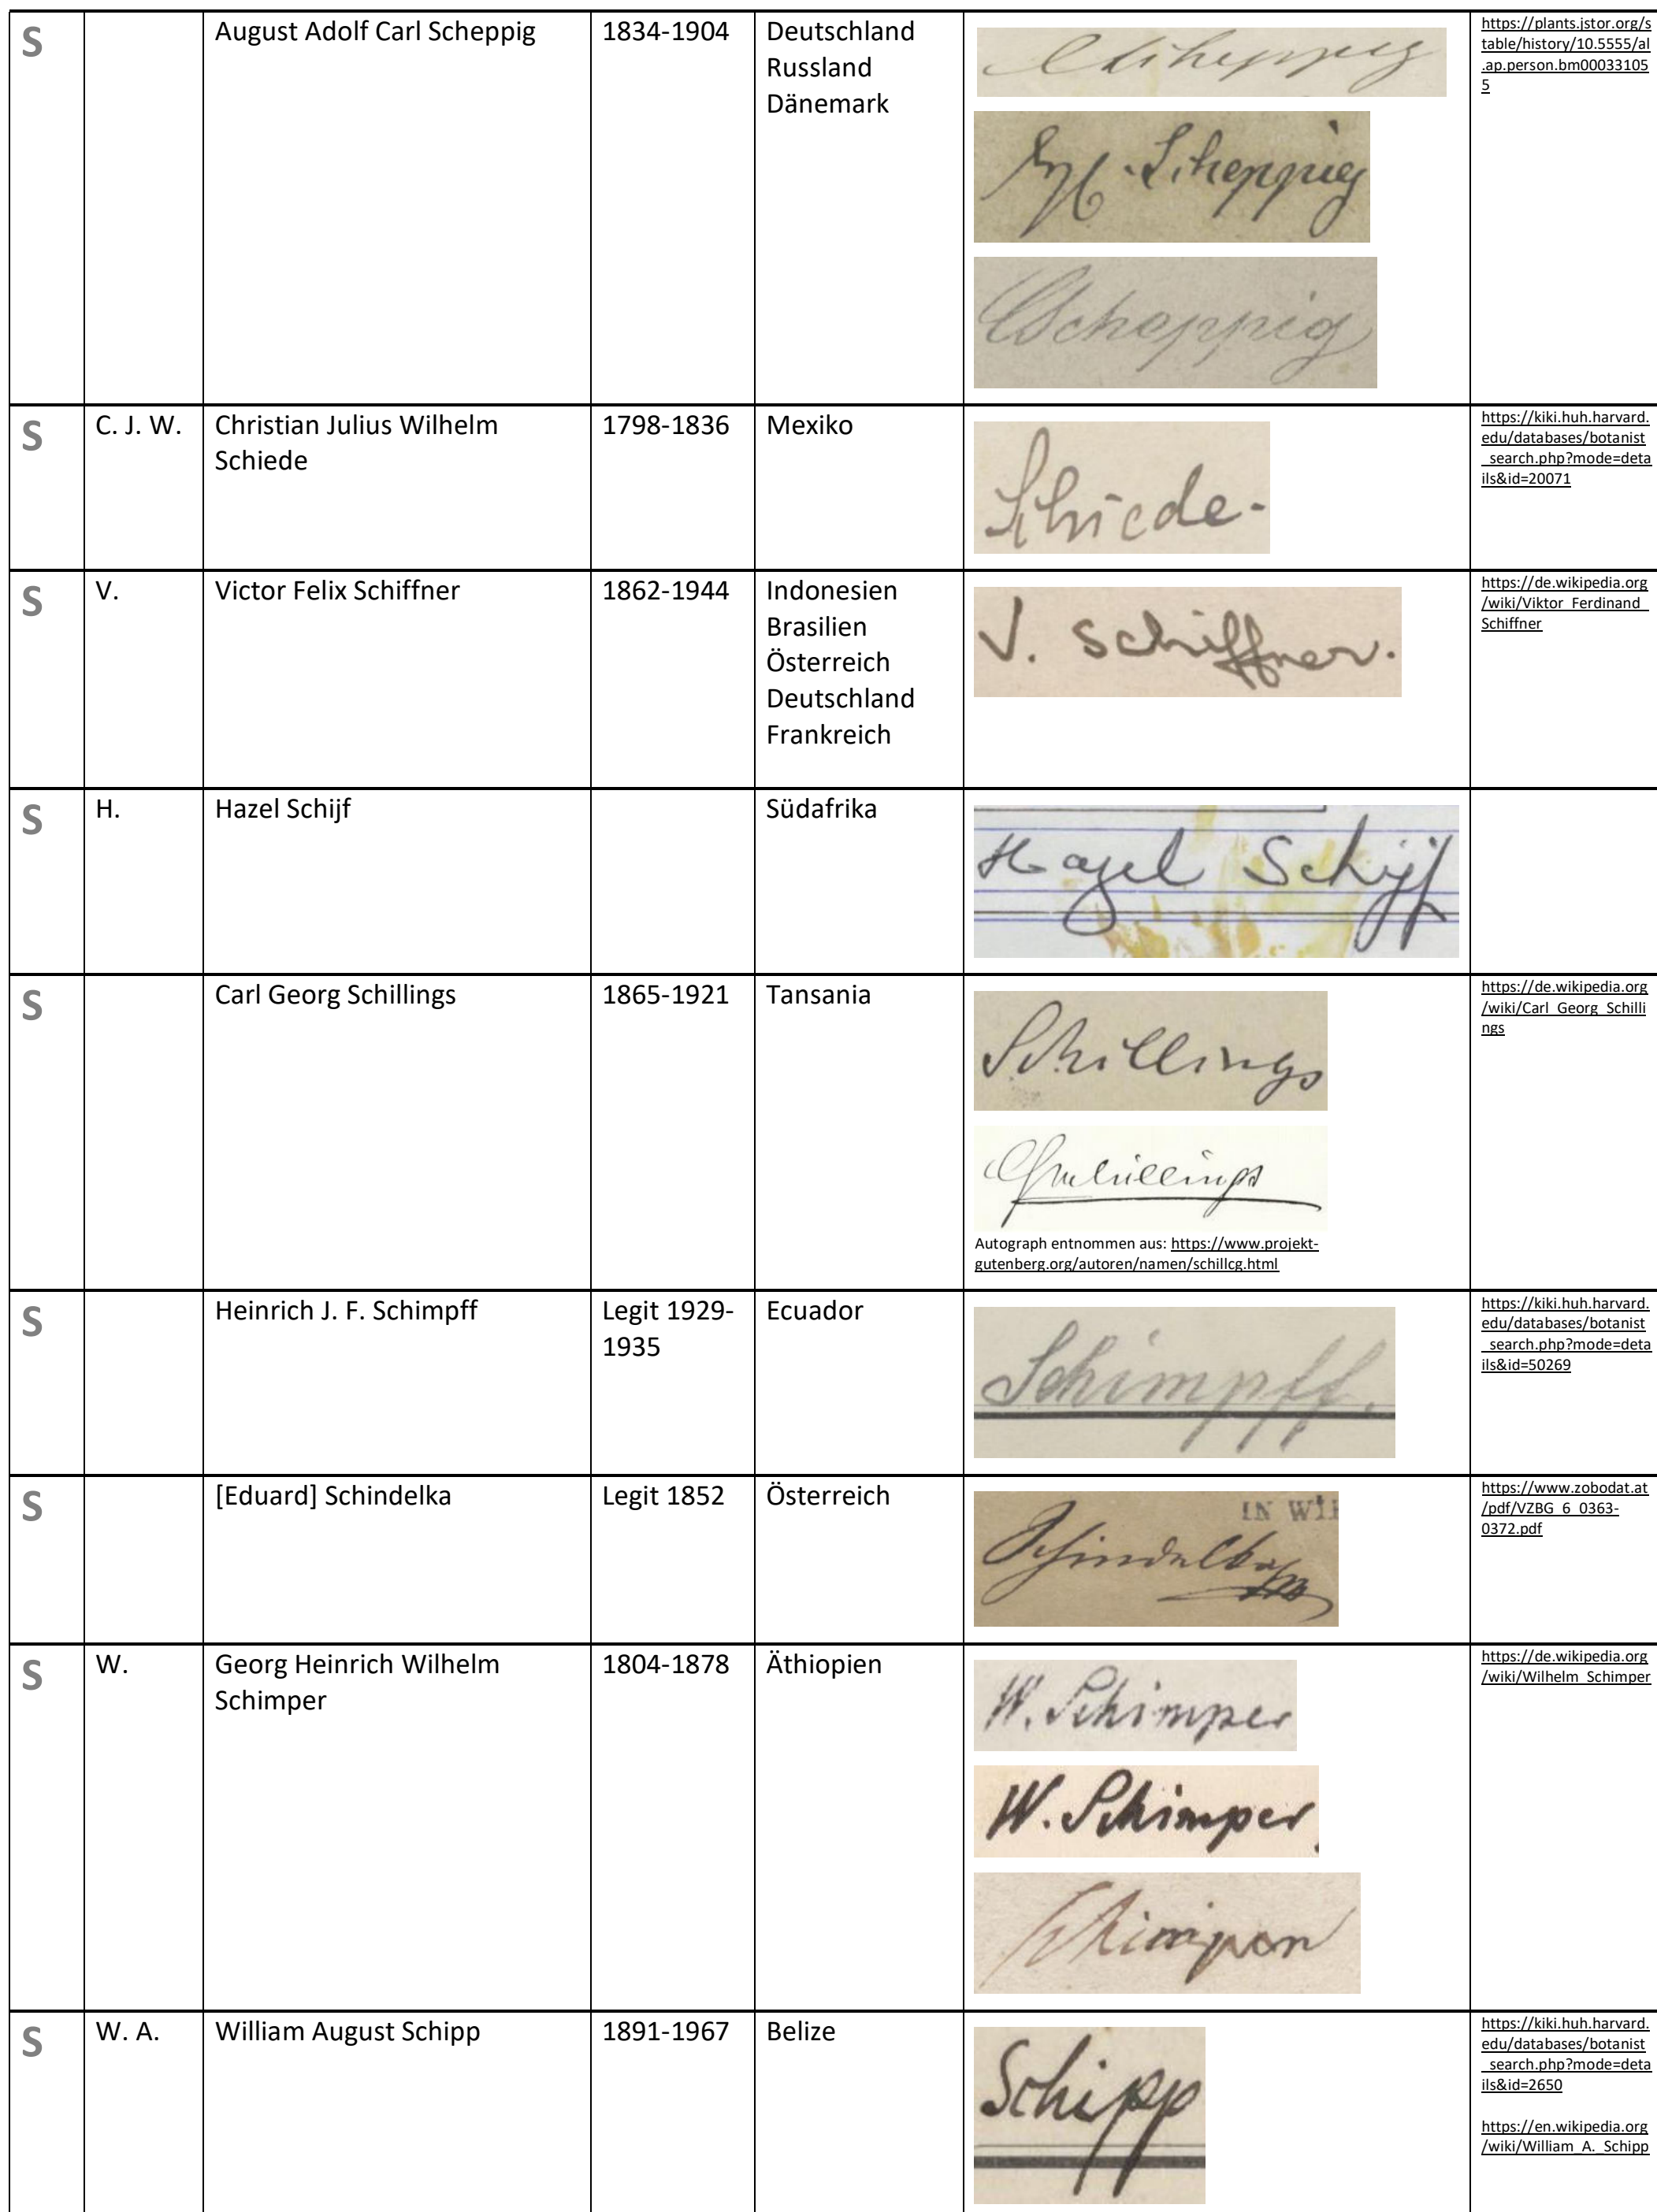 S
August Adolf Carl Scheppig
1834-1904
Deutschland
Russland
Dänemark
CScheppig
Scheppig
CScheppig
https://plants.jstor.org/s
table/history/10.5555/al
.ap.person.bm00033105
5
S
C. J. W.
Christian Julius Wilhelm
Schiede
1798-1836
Mexiko
Schiede-
https://kiki.huh.harvard.
edu/databases/botanist
_search.php?mode=deta
ils&id=20071
S
V.
Victor Felix Schiffner
1862-1944
Indonesien
Brasilien
Österreich
Deutschland
Frankreich
V. Schiffner.
https://de.wikipedia.org
/wiki/Viktor_Ferdinand_
Schiffner
S
H.
Hazel Schijf
Südafrika
Hazel Schijf
S
Carl Georg Schillings
1865-1921
Tansania
Schillings
CGSchillings
Autograph entnommen aus: https://www.projekt-
gutenberg.org/autoren/namen/schillcg.html
https://de.wikipedia.org
/wiki/Carl_Georg_Schilli
ngs
S
Heinrich J. F. Schimpff
Legit 1929-
1935
Ecuador
Schimpff.
https://kiki.huh.harvard.
edu/databases/botanist
_search.php?mode=deta
ils&id=50269
S
[Eduard] Schindelka
Legit 1852
Österreich
IN WI
Schindelka
https://www.zobodat.at
/pdf/VZBG_6_0363-
0372.pdf
S
W.
Georg Heinrich Wilhelm
Schimper
1804-1878
Äthiopien
W. Schimper
W. Schimper
Schimper
https://de.wikipedia.org
/wiki/Wilhelm_Schimper
S
W. A.
William August Schipp
1891-1967
Belize
Schipp
https://kiki.huh.harvard.
edu/databases/botanist
_search.php?mode=deta
ils&id=2650
https://en.wikipedia.org
/wiki/William_A._Schipp